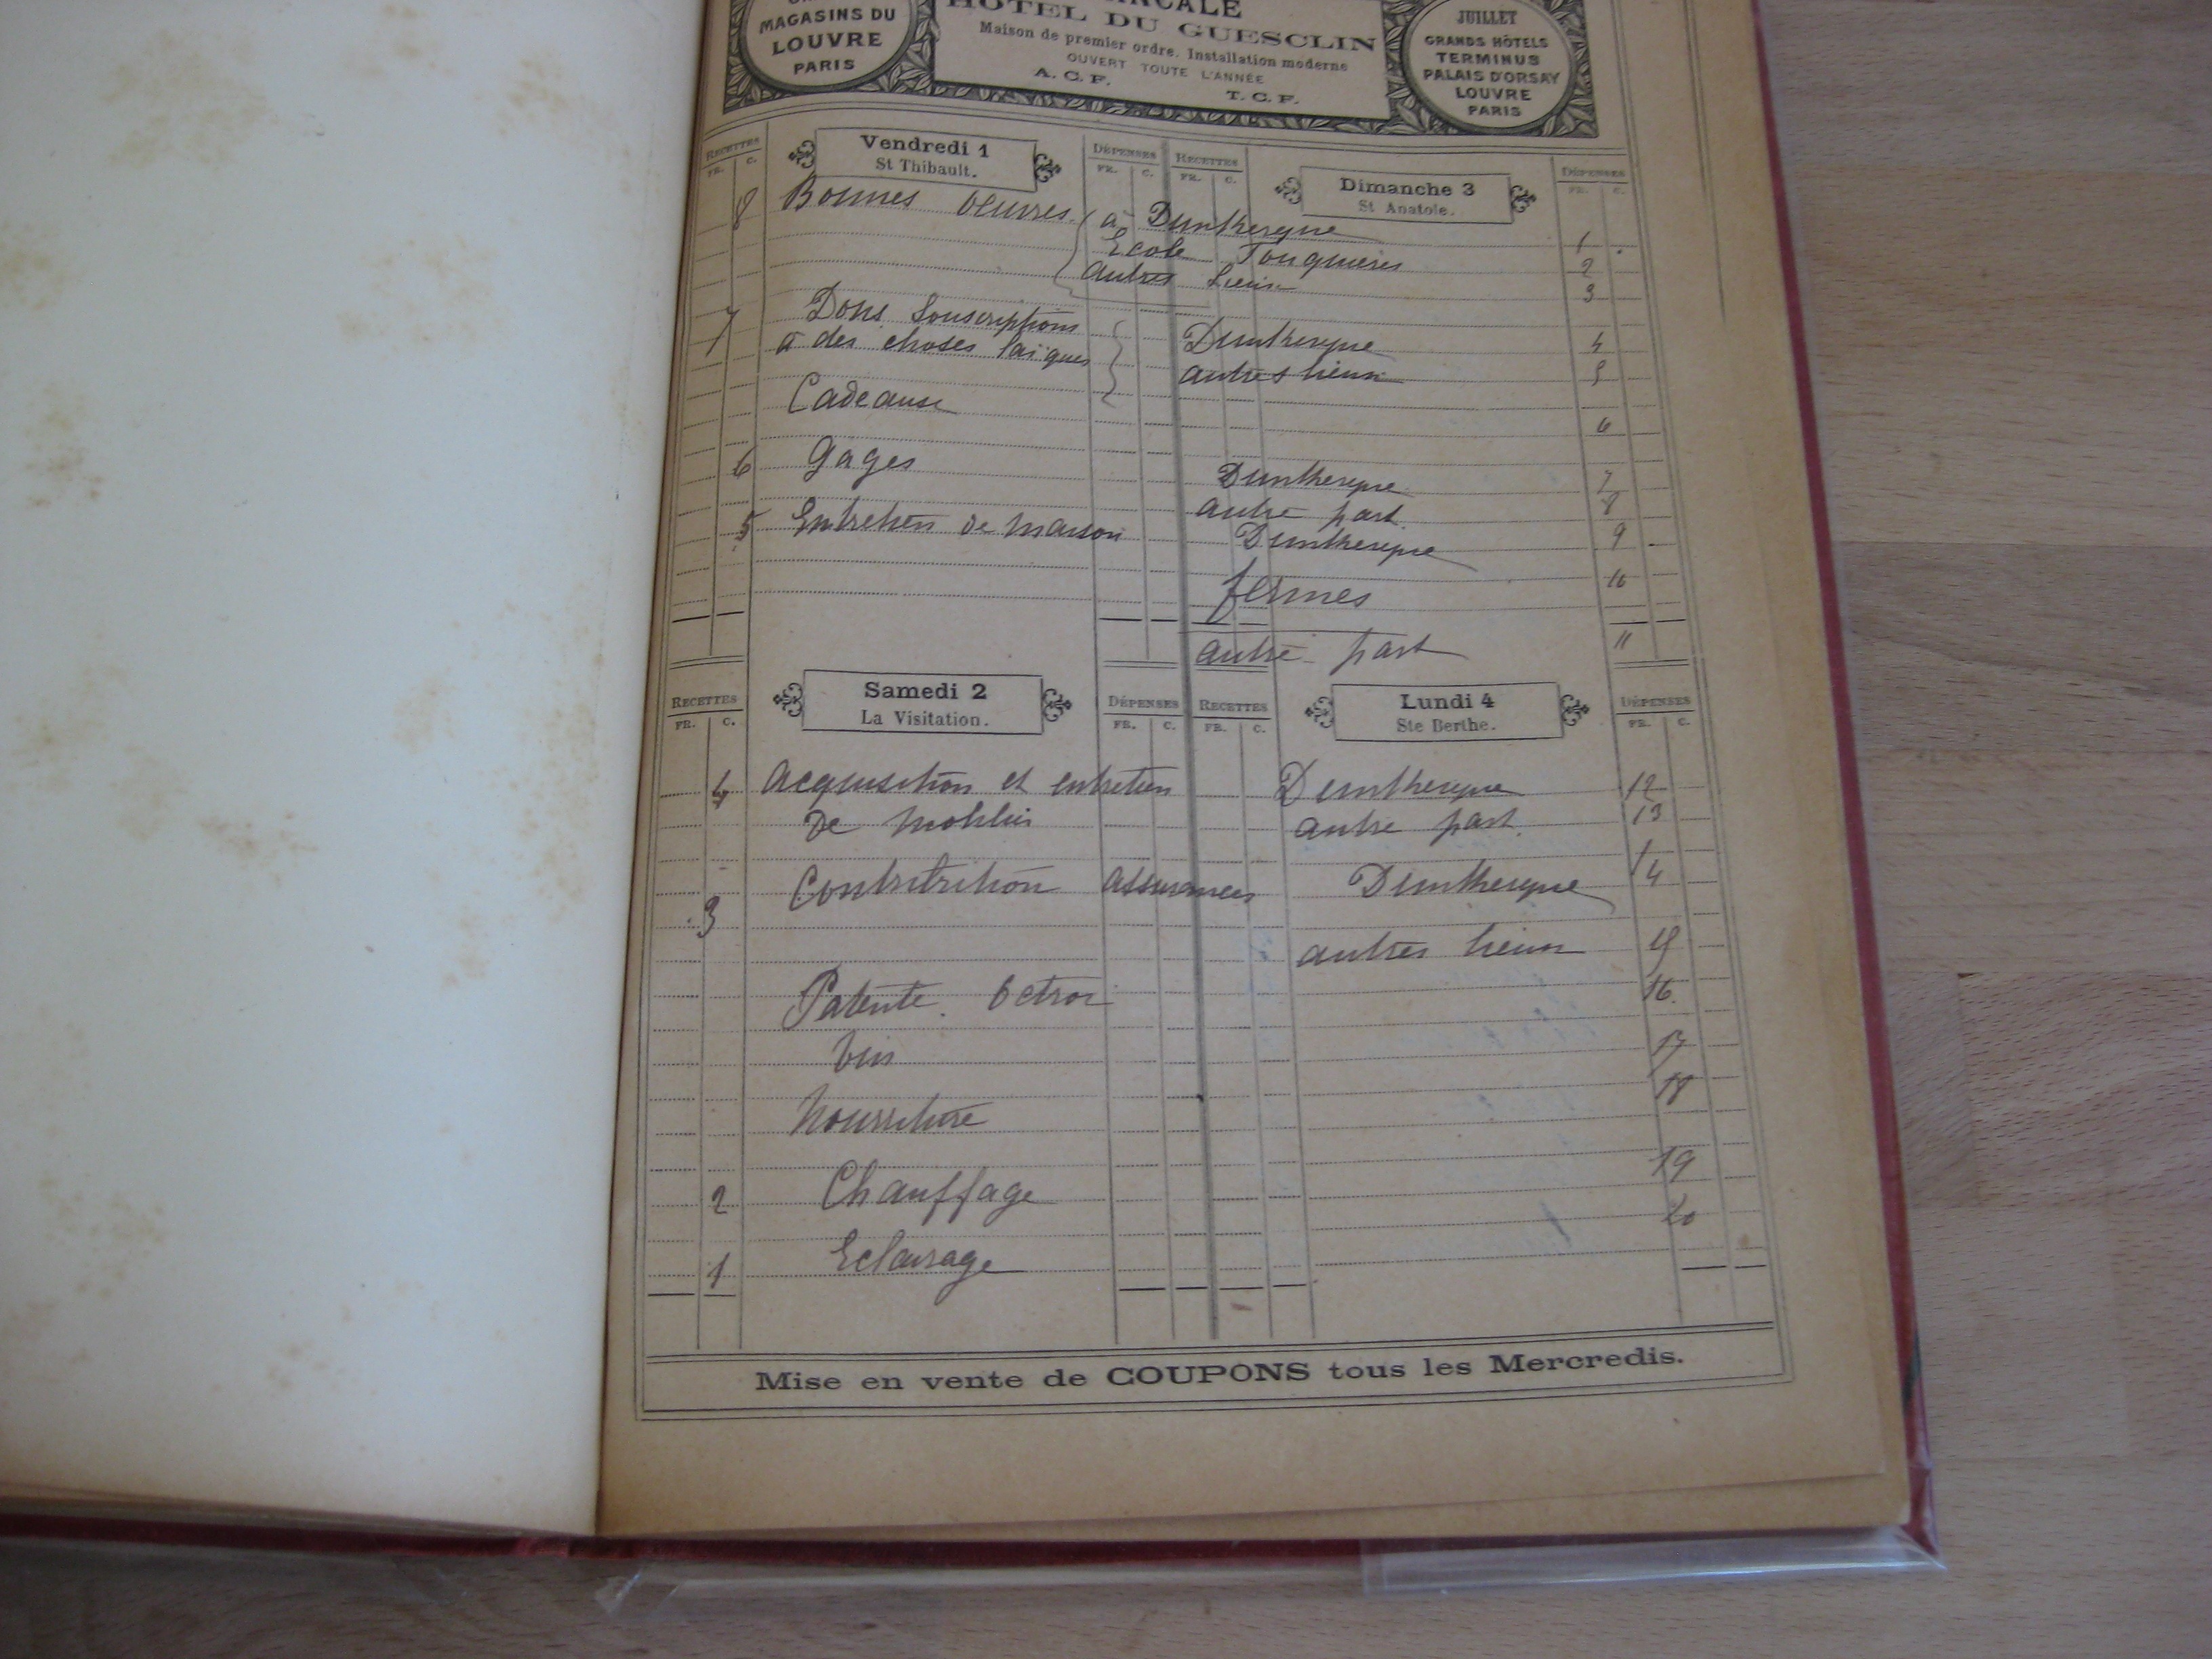 MAGASINS DU
LOUVRE
PARIS
HOTEL DU GUESCLIN
Maison de premier ordre. Installation moderne
OUVERT TOUTE L'ANNÉE
A. C. F. T. C. F.
JUILLET
GRANDS HÔTELS
TERMINUS
PALAIS D'ORSAY
LOUVRE
PARIS
RECETTES
FR. C.
Vendredi 1
St Thibault.
DÉPENSES
FR. C.
RECETTES
FR. C.
Dimanche 3
St Anatole.
DÉPENSES
FR. C.
8 Bonnes oeuvres à Dunkerque 1
Ecole 2
autres lieux 3
7 Dons Souscriptions
à des choses laïques Dunkerque 4
autres lieux 5
Cadeaux 6
6 Gages Dunkerque 7
autre part. 8
5 Entretien de maison Dunkerque 9
fermes 10
autre part 11
RECETTES
FR. C.
Samedi 2
La Visitation.
DÉPENSES
FR. C.
RECETTES
FR. C.
Lundi 4
Ste Berthe.
DÉPENSES
FR. C.
4 acquisition et entretien Dunkerque 12
de mobilier autre part. 13
3 Contribution assurances Dunkerque 14
autres lieux 15
Patente. Octroi 16.
Vin 17
Nourriture 18
2 Chauffage 19
1 Eclairage 20
Mise en vente de COUPONS tous les Mercredis.